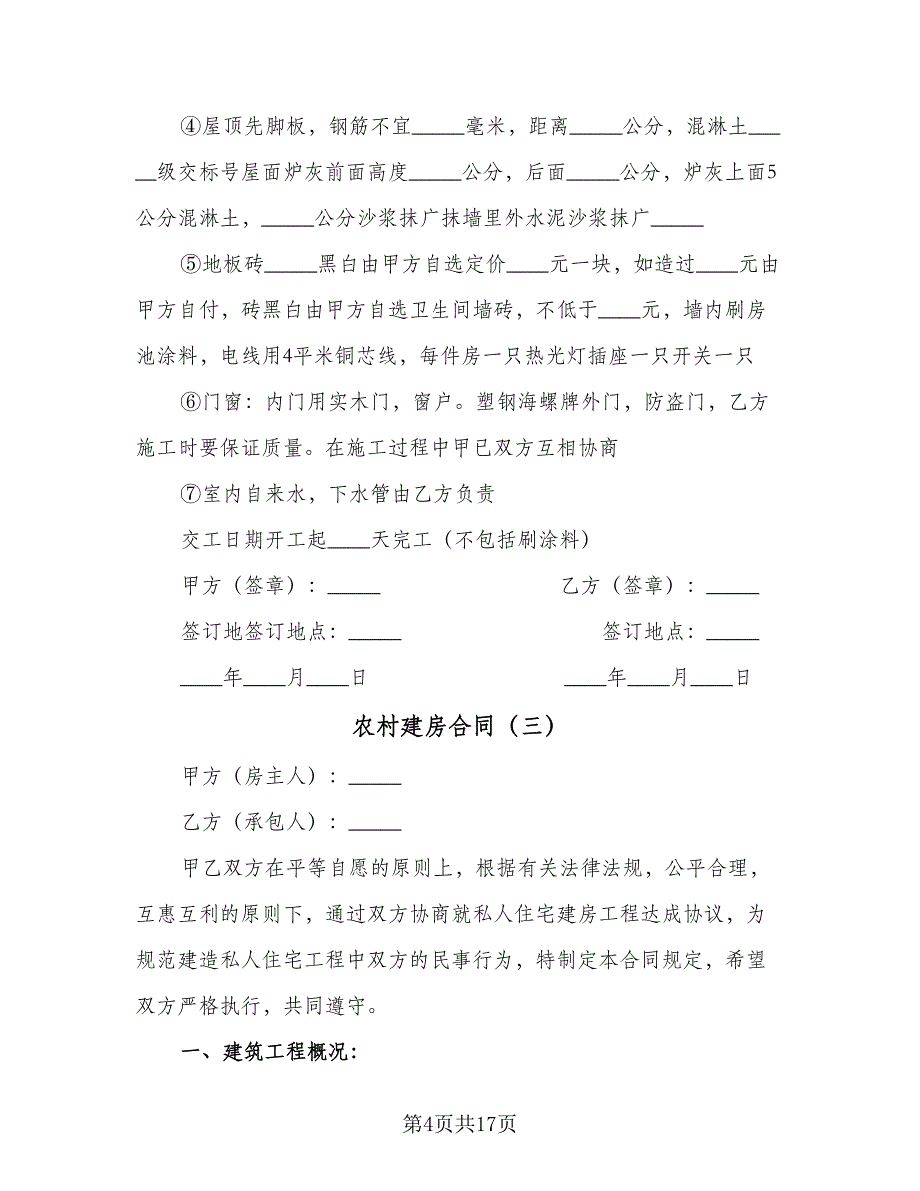 ④屋顶先脚板，钢筋不宜_____毫米，距离_____公分，混淋土___
__级交标号屋面炉灰前面高度_____公分，后面_____公分，炉灰上面5
公分混淋土，_____公分沙浆抹广抹墙里外水泥沙浆抹广_____
⑤地板砖_____黑白由甲方自选定价____元一块，如造过____元由
甲方自付，砖黑白由甲方自选卫生间墙砖，不低于____元，墙内刷房
池涂料，电线用4平米铜芯线，每件房一只热光灯插座一只开关一只
⑥门窗：内门用实木门，窗户。塑钢海螺牌外门，防盗门，乙方
施工时要保证质量。在施工过程中甲已双方互相协商
⑦室内自来水，下水管由乙方负责
交工日期开工起____天完工（不包括刷涂料）
甲方（签章）：_____ 乙方（签章）：_____
签订地签订地点：_____ 签订地点：_____
____年____月____日 ____年____月____日
农村建房合同（三）
甲方（房主人）：_____
乙方（承包人）：_____
甲乙双方在平等自愿的原则上，根据有关法律法规，公平合理，
互惠互利的原则下，通过双方协商就私人住宅建房工程达成协议，为
规范建造私人住宅工程中双方的民事行为，特制定本合同规定，希望
双方严格执行，共同遵守。
一、建筑工程概况：
第4页共17页